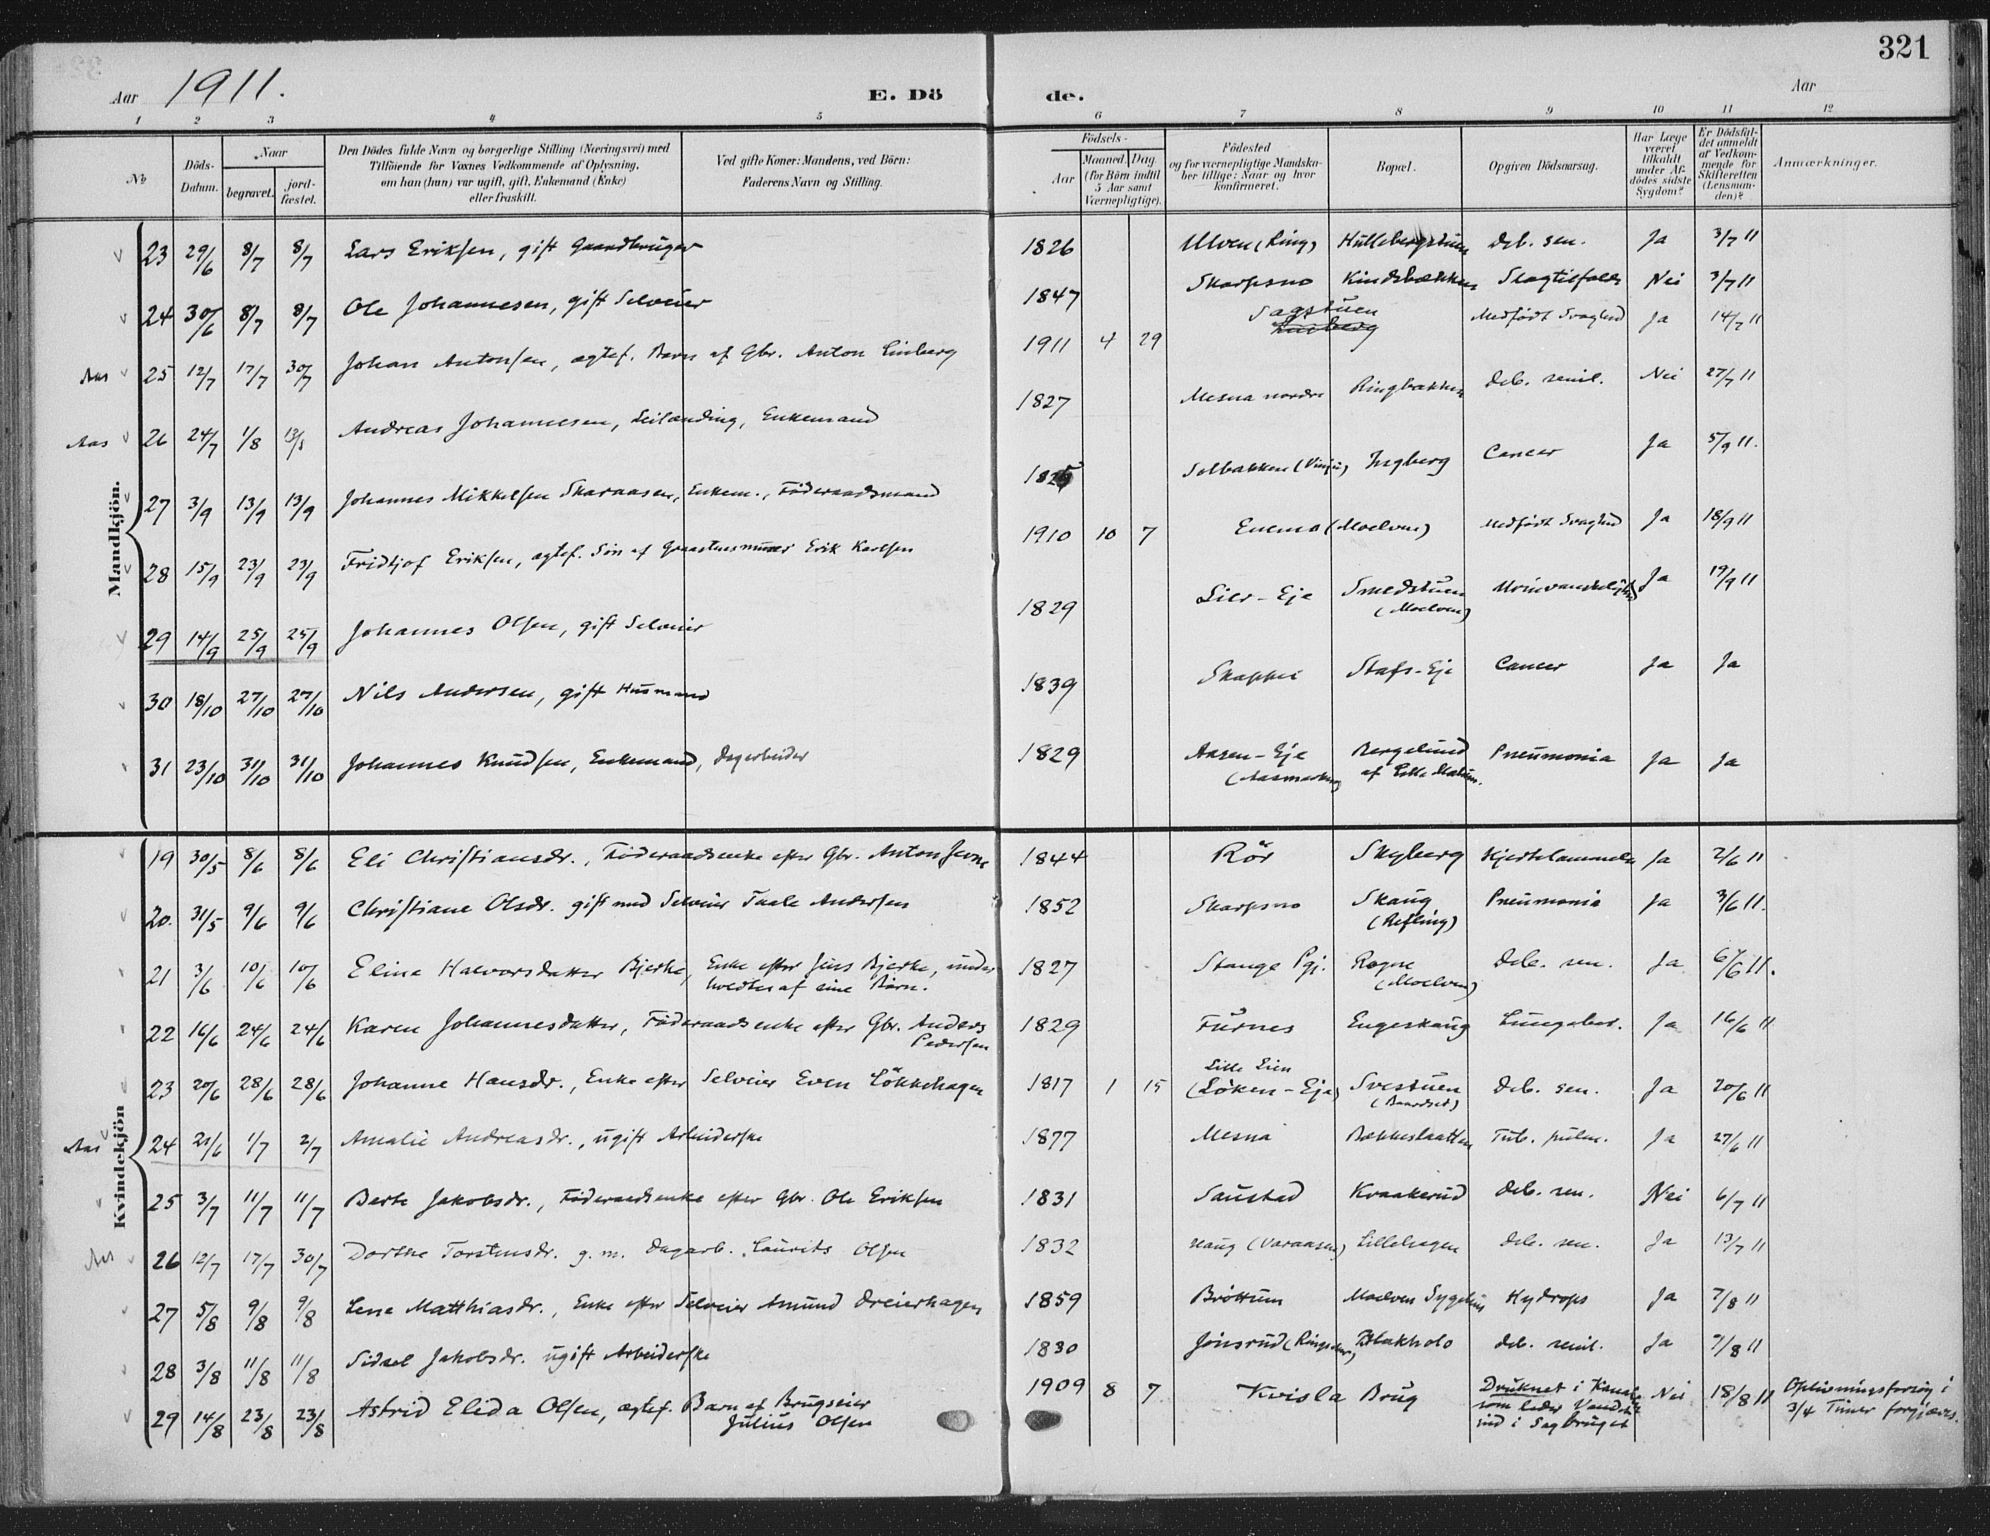 321
Aar 1911.
E. Dö de.
Aar
1 2 3 4 5 6 7 8 9 10 11 12
No
Döds-Datum.
Naar
begravet.
jord-fæstet.
Den Dödes fulde Navn og borgerlige Stilling (Næringsvei) med
Tilföiende for Voxnes Vedkommende af Oplysning,
om han (hun) var ugift, gift, Enkemand (Enke)
eller fraskilt.
Ved gifte Koner: Mandens, ved Börn:
Faderens Navn og Stilling.
Födsels-
Aar
Maaned. Dag
(for Börn indtil
5 Aar samt
Værnepligtige).
Födested
og for værnepligtige Mandska-
ber tillige: Naar og hvor
konfirmeret.
Bopæl.
Opgiven Dödsaarsag.
Har Læge
været
tilkaldt
under Af-
dödes sidste
Sygdom?
Er Dödsfal-
det anmeldt
af Vedkom-
mende for
Skifteretten
(Lensman-
den)?
Anmærkninger.
Mandkjön.
23 29/6 8/7 8/7 Lars Eriksen, gift Gaardbruger 1826 Ulven (Ring) Hullebergstuen deb. sen. Ja 3/7 11
24 30/6 8/7 8/7 Ole Johannesen, gift Selveier 1847 Skarpsno Kindsbækken Slagtilfælde Nei 3/7 11
Aas 25 12/7 17/7 30/7 Johan Antonsen, ægtef. Barn af Gbr. Anton Linberg 1911 4 29 Sagstuen Medfödt Svaghed Ja 14/7 11
Aas 26 24/7 1/8 Andreas Johannesen, Leilænding, Enkemand 1827 Mesna nordre Ringbakken deb. senil. Nei 27/7 11
27 3/9 13/9 13/9 Johannes Mikkelsen Skaraasen, Enkem., Föderaadsmand 1825 Solbakken Ingberg Cancer Ja 5/9 11.
28 15/9 23/9 23/9 Fridtjof Eriksen, ægtef. Sön af Erik Karlsen 1910 10 7 Enemo (Moelven) Medfödt Svaghed Ja 18/9 11
29 14/9 25/9 25/9 Johannes Olsen, gift Selveier 1829 Lier-Eje Smedstuen
(Moelven) Ja 19/9 11
30 18/10 27/10 27/10 Nils Andersen, gift Husmand 1839 Skappei Stafs-Eje Cancer Ja Ja
31 23/10 31/10 31/10 Johannes Knudsen, Enkemand, Dagarbeider 1829 Aasen-Eje
(Aasmarken) Bergelund
af Lille Pneumonia Ja Ja
Kvindekjön
19 30/5 8/6 8/6 Eli Christiansdr., Föderaadsenke efter Gbr. Anton Jevne 1844 Rör Skyberg Hjertelammelse Ja 2/6 11
20. 31/5 9/6 9/6 Christiane Olsdr. gift med Selveier Taale Andersen 1852 Skarpsno Skaug
(Refling) Pneumonia Ja 3/6 11.
21 3/6 10/6 10/6 Eline Halvorsdatter Bjerke, Enke efter Jens Bjerke, under-
holdtes af sine Börn. 1827 Stange Pgj. Rogne
(Moelven) deb. sen. Ja 6/6 11.
22 16/6 24/6 24/6 Karen Johannesdatter, Föderaadsenke efter Gbr. Anders
Pedersen 1829 Furnes Engeskaug Lungebet. Ja 16/6 11
23 20/6 28/6 28/6 Johanne Hansdr., Enke efter Selveier Even Lökkehagen 1817 1 15 Lille Lien
(Löken-Eje) Svestuen
(Baardset) deb. sen. Ja 20/6 11
Aas 24 21/6 1/7 2/7 Amalie Andreasdr., ugift Arbeiderske 1877 Mesna Bækkeslaatten Tub. pulm. Ja 27/6 11
25 3/7 11/7 11/7 Berte Jakobsdr., Föderaadsenke efter Gbr. Ole Eriksen 1831 Saustad Kvaakerud deb. sen. Nei 6/7 11
Aas 26 12/7 17/7 30/7 Dorthe Torstensdr. g. m. Dagarb. Laurits Olsen 1832 Haug (Varaasen) Lillehagen deb. sen. Ja 13/7 11
27 5/8 9/8 9/8 Lene Matthiasdr., Enke efter Selveier Amund Dreierhagen 1859 Bröttum Moelven Sygehus Hydrops Ja 7/8 11
28 3/8 11/8 11/8 Sidsel Jakobsdr. ugift Arbeiderske 1830 Jönsrud Blakholo deb. senil. Ja 7/8 11
29 14/8 23/8 23/8 Astrid Elida Olsen, ægtef. Barn af Brugseier
Julius Olsen 1909 8 7 Kvisla Brug Druknet i Kanal
som leder Vandet
ind i Sagbruget Nei 18/8 11 Oplivningsforsög i
3/4 Timer forgjæves.